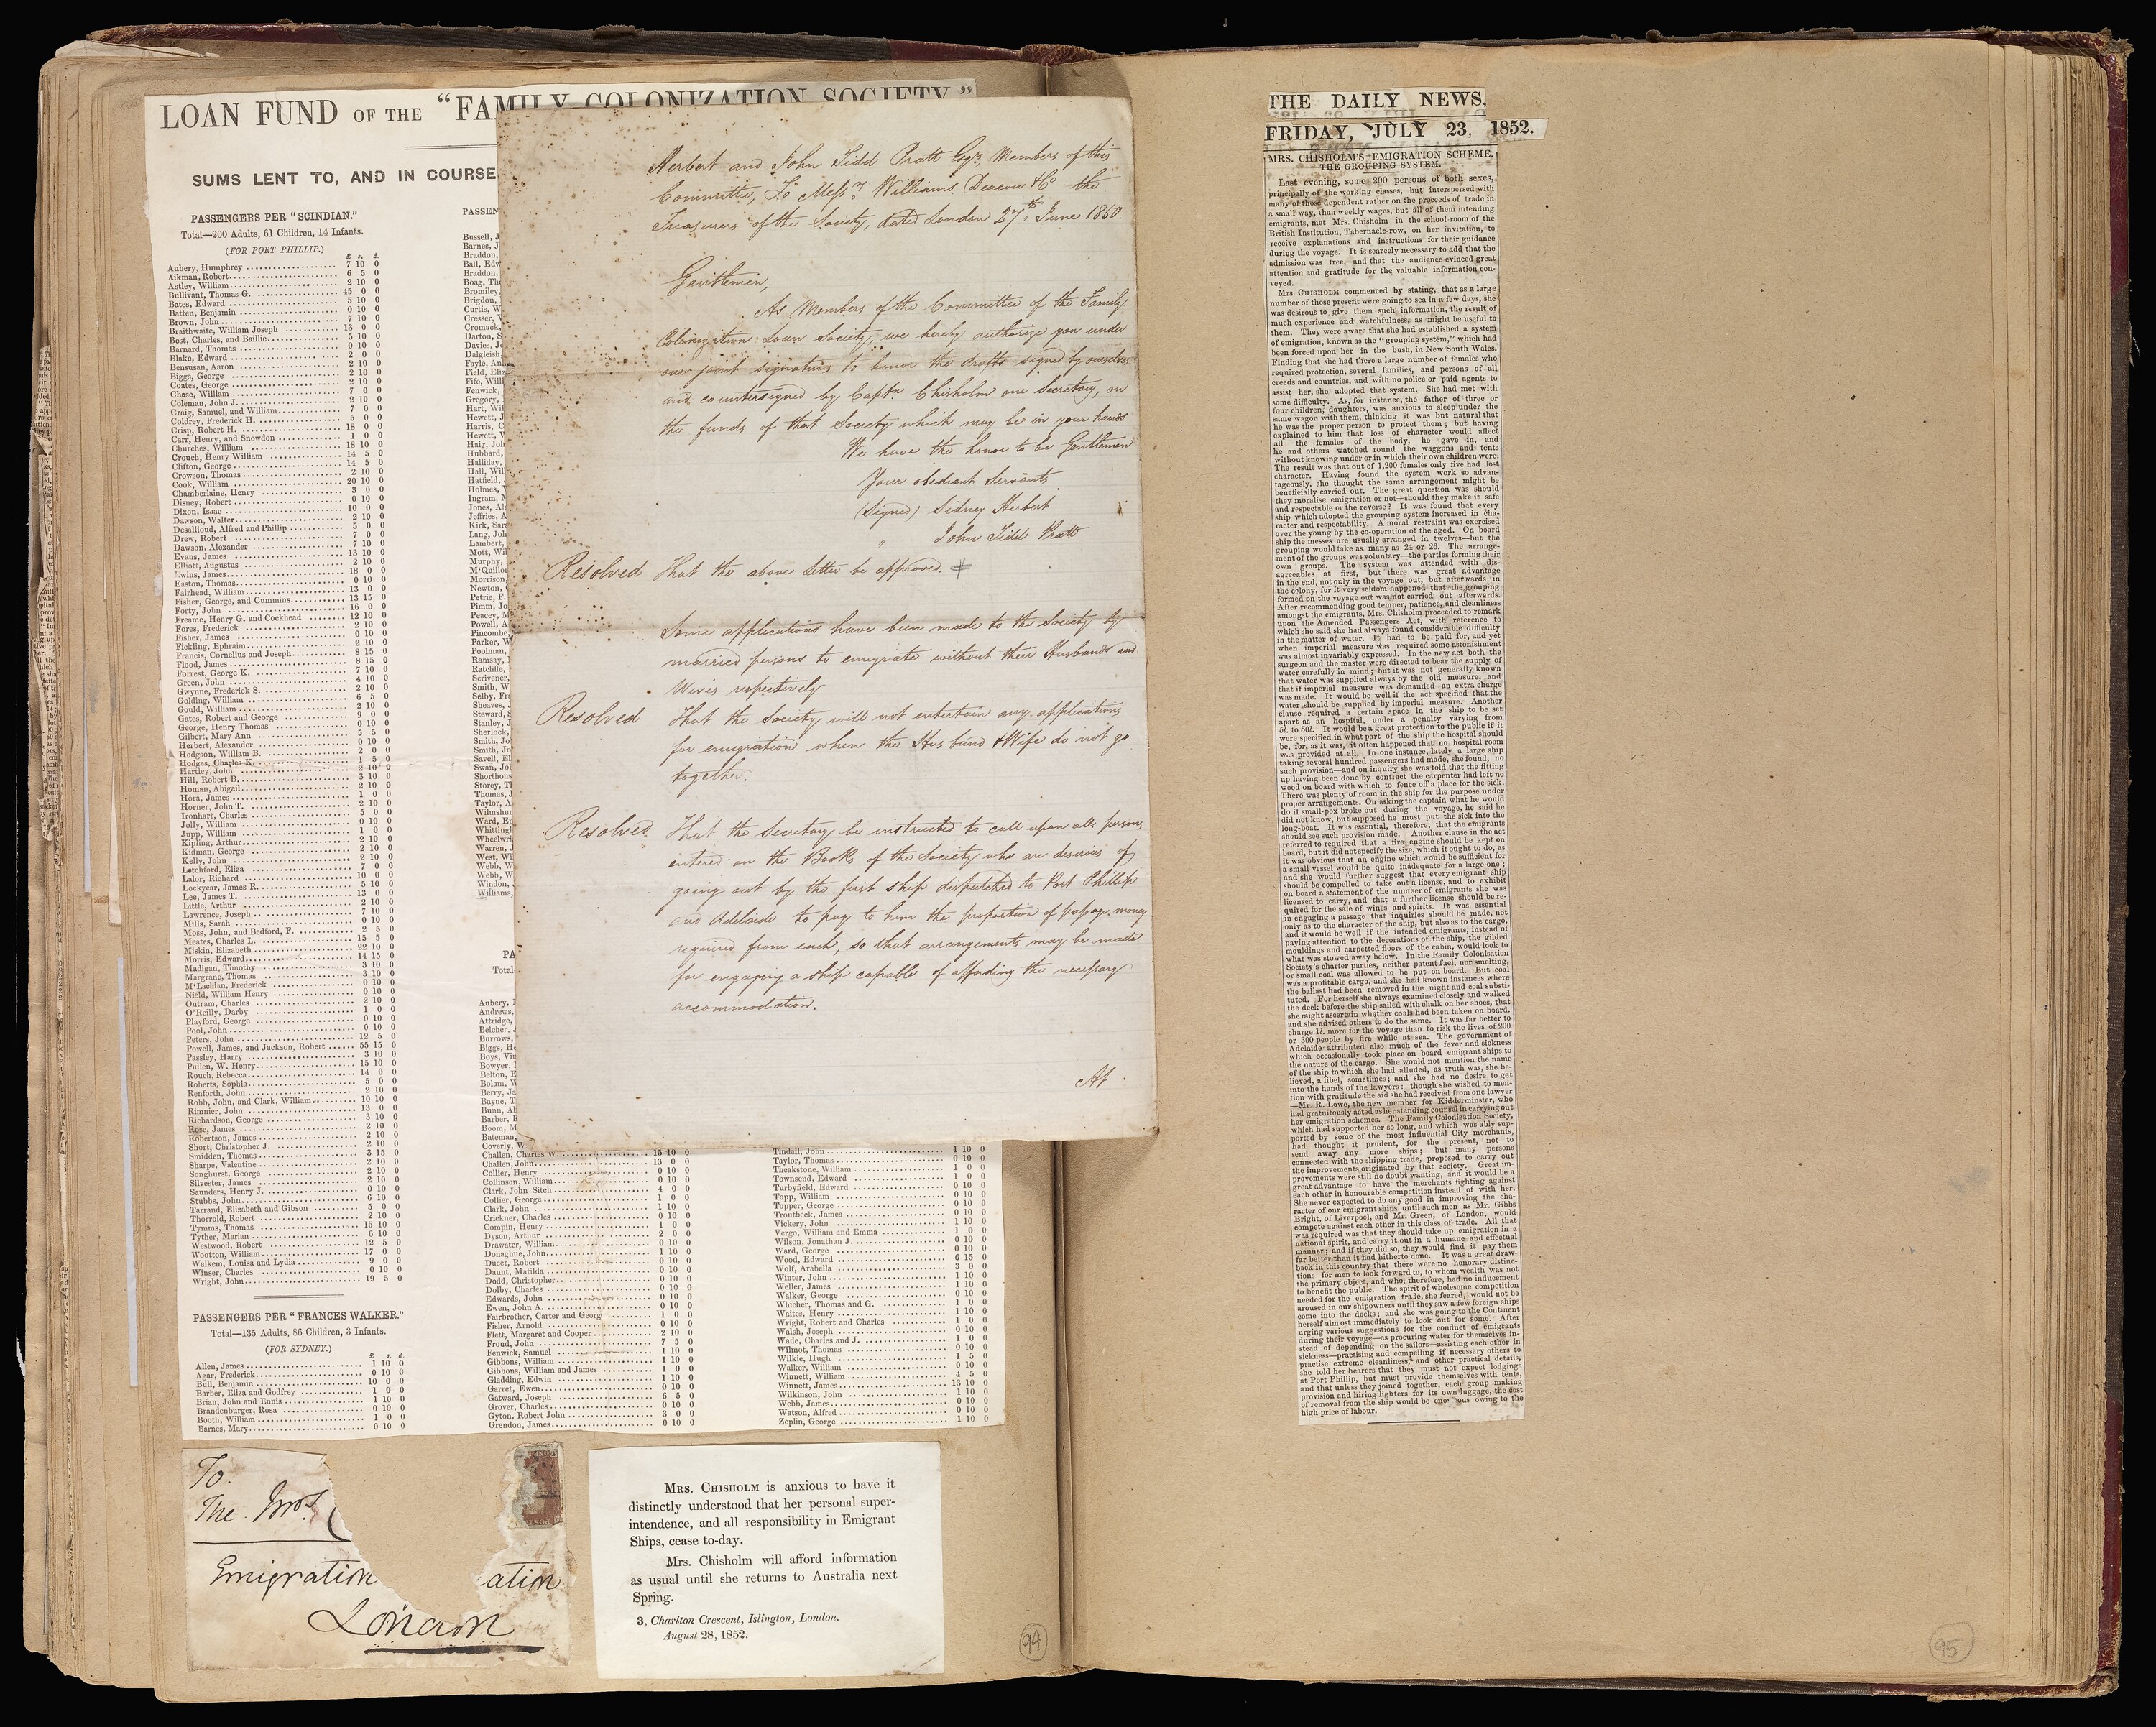 LOAN FUND OF THE "FAMILY COLONIZATION SOCIETY."
SUMS LENT TO, AND IN COURSE
PASSENGERS PER "SCINDIAN."
Total—200 Adults, 61 Children, 14 Infants.
(FOR PORT PHILLIP.)
£ s. d.
Aubery, Humphrey 7 10 0
Aikman, Robert 6 5 0
Astley, William 2 10 0
Bullivant, Thomas G. 45 0 0
Bates, Edward 5 10 0
Batten, Benjamin 0 10 0
Brown, John 7 10 0
Braithwaite, William Joseph 13 0 0
Best, Charles, and Baillie 5 10 0
Barnard, Thomas 0 10 0
Blake, Edward 2 0 0
Bensusan, Aaron 2 10 0
Biggs, George 2 10 0
Coates, George 2 10 0
Chase, William 7 0 0
Coleman, John J. 2 10 0
Craig, Samuel, and William 7 0 0
Coldrey, Frederick H. 5 0 0
Crisp, Robert H. 18 0 0
Carr, Henry, and Snowdon 1 0 0
Churches, William 18 10 0
Crouch, Henry William 14 5 0
Clifton, George 14 5 0
Crowson, Thomas 2 10 0
Cook, William 20 10 0
Chamberlaine, Henry 3 0 0
Disney, Robert 0 10 0
Dixon, Isaac 10 0 0
Dawson, Walter 2 10 0
Desallioud, Alfred and Phillip 5 0 0
Drew, Robert 7 0 0
Dawson, Alexander 7 10 0
Evans, James 13 10 0
Elliott, Augustus 2 10 0
Ewins, James 18 0 0
Easton, Thomas 0 10 0
Fairhead, William 13 0 0
Fisher, George, and Cummins 13 15 0
Forty, John 16 0 0
Freame, Henry G. and Cockhead 12 10 0
Fores, Frederick 2 10 0
Fisher, James 0 10 0
Fickling, Ephraim 2 10 0
Francis, Cornelius and Joseph 8 15 0
Flood, James 8 15 0
Forrest, George K. 7 10 0
Green, John 4 10 0
Gwynne, Frederick S. 2 10 0
Golding, William 6 5 0
Gould, William 2 10 0
Gates, Robert and George 9 0 0
George, Henry Thomas 0 10 0
Gilbert, Mary Ann 5 5 0
Herbert, Alexander 0 10 0
Hodgson, William B. 2 0 0
Hodges, Charles K. 1 5 0
Hartley, John 2 10 0
Hill, Robert B. 3 10 0
Homan, Abigail 2 10 0
Hora, James 1 0 0
Horner, John T. 2 10 0
Ironhart, Charles 5 0 0
Jolly, William 0 10 0
Jupp, William 1 0 0
Kipling, Arthur 2 10 0
Kidman, George 2 10 0
Kelly, John 2 10 0
Letchford, Eliza 7 0 0
Lalor, Richard 10 0 0
Lockyear, James R. 5 10 0
Lee, James T. 13 0 0
Little, Arthur 2 10 0
Lawrence, Joseph 7 10 0
Mills, Sarah 0 10 0
Moss, John, and Bedford, F. 2 5 0
Meates, Charles L. 15 5 0
Miskin, Elizabeth 22 10 0
Morris, Edward 14 15 0
Madigan, Timothy 3 10 0
Margrane, Thomas 3 10 0
M'Lachlan, Frederick 0 10 0
Nield, William Henry 0 10 0
Outram, Charles 2 10 0
O'Reilly, Darby 1 0 0
Playford, George 0 10 0
Pool, John 0 10 0
Peters, John 12 5 0
Powell, James, and Jackson, Robert 55 15 0
Passley, Harry 3 10 0
Pullen, W. Henry 15 10 0
Rouch, Rebecca 14 0 0
Roberts, Sophia 5 0 0
Renforth, John 2 10 0
Robb, John, and Clark, William 10 10 0
Rimnier, John 13 0 0
Richardson, George 3 10 0
Rose, James 2 10 0
Robertson, James 2 10 0
Short, Christopher J. 2 10 0
Smidden, Thomas 3 15 0
Sharpe, Valentine 2 10 0
Songhurst, George 2 10 0
Silvester, James 2 10 0
Saunders, Henry J. 0 10 0
Stubbs, John 6 10 0
Tarrand, Elizabeth and Gibson 5 0 0
Thorrold, Robert 2 10 0
Tymms, Thomas 15 10 0
Tyther, Marian 6 10 0
Westwood, Robert 12 5 0
Wootton, William 17 0 0
Walkem, Louisa and Lydia 9 0 0
Winser, Charles 0 10 0
Wright, John 19 5 0
PASSENGERS PER "FRANCES WALKER."
Total—135 Adults, 86 Children, 3 Infants.
(FOR SYDNEY.)
£ s. d.
Allen, James 1 10 0
Agar, Frederick 0 10 0
Bull, Benjamin 10 0 0
Barber, Eliza and Godfrey 1 0 0
Brian, John and Ennis 1 10 0
Brandenburger, Rosa 0 10 0
Booth, William 1 0 0
Barnes, Mary 0 10 0
PASSEN
Bussell, J
Barnes, J
Braddon,
Ball, Edw
Braddon,
Boag, Tho
Bromiley,
Brigdon,
Curtis, W
Cresser, W
Cromack,
Darton, S
Davies, J
Dalgleish,
Fayle, An
Field, Eliz
Fife, Willi
Fenwick,
Gregory,
Hart, Wil
Hewett, J
Harris, C
Hewett, W
Haig, Joh
Hubbard,
Halliday,
Hall, Will
Hatfield,
Holmes,
Ingram, M
Jones, Al
Jeffries, A
Kirk, San
Lang, Joh
Lambert,
Mott, Wil
Murphy,
M'Quillo
Morrison,
Newton,
Petrie, F.
Pimm, Jo
Peacey, M
Powell, A
Pincombe,
Parker, W
Poolman,
Ramsay,
Ratcliffe,
Scrivener,
Smith, W
Selby, Fra
Sheaves,
Steward,
Stanley, J
Sherlock,
Smith, Jo
Smith, Jo
Savell, El
Swan, Jol
Shorthous
Storey, Th
Thomas, J
Taylor, A
Wilmshur
Ward, En
Whittingl
Wheelwri
Warren, J
West, Wi
Webb, W
Webb, W
Windon,
Williams,
PA
Total-
Aubery,
Andrews,
Attridge,
Belcher, J
Burrows,
Biggs, He
Boys, Vin
Bowyer,
Belton, E
Bolam, W
Berry, Ja
Bayne, T
Bunn, Al
Barber, E
Boom, M
Bateman,
Coverly, W
Challen, Charles W. 15 10 0
Challen, John 13 0 0
Collier, Henry 0 10 0
Collinson, William 0 10 0
Clark, John Sitch 4 0 0
Collier, George 1 0 0
Clark, John 1 10 0
Crickner, Charles 0 10 0
Compin, Henry 1 0 0
Dyson, Arthur 2 0 0
Drawater, William 0 10 0
Donaghue, John 1 10 0
Ducet, Robert 0 10 0
Daunt, Matilda 0 10 0
Dodd, Christopher 0 10 0
Dolby, Charles 0 10 0
Edwards, John 0 10 0
Ewen, John A. 0 10 0
Fairbrother, Carter and Georg 1 0 0
Fisher, Arnold 0 10 0
Flett, Margaret and Cooper 2 10 0
Froud, John 7 5 0
Fenwick, Samuel 1 10 0
Gibbons, William 1 10 0
Gibbons, William and James 1 0 0
Gladding, Edwin 1 10 0
Garret, Ewen 0 10 0
Gatward, Joseph 6 5 0
Grover, Charles 0 10 0
Gyton, Robert John 3 0 0
Grendon, James 0 10 0
Tindall, John 1 10 0
Taylor, Thomas 0 10 0
Theakstone, William 1 0 0
Townsend, Edward 1 0 0
Turbyfield, Edward 0 10 0
Topp, William 0 10 0
Topper, George 0 10 0
Troutbeck, James 0 10 0
Vickery, John 1 10 0
Vergo, William and Emma 1 0 0
Wilson, Jonathan J. 0 10 0
Ward, George 0 10 0
Wood, Edward 6 15 0
Wolf, Arabella 3 0 0
Winter, John 1 10 0
Weller, James 1 10 0
Walker, George 0 10 0
Whicher, Thomas and G. 1 0 0
Waites, Henry 1 10 0
Wright, Robert and Charles 1 0 0
Walsh, Joseph 0 10 0
Wade, Charles and J. 1 0 0
Wilmot, Thomas 0 10 0
Wilkie, Hugh 1 5 0
Walker, William 0 10 0
Winnett, William 4 5 0
Winnett, James 13 10 0
Wilkinson, John 1 10 0
Webb, James 0 10 0
Watson, Alfred 0 10 0
Zeplin, George 1 10 0
Herbert and John Tidd Pratt Esqrs. Members of this
Committee, To Messrs. Williams Deacon & Co the
Treasurers of the Society, dated London 27th June 1850.
Gentlemen,
As Members of the Committee of the Family
Colonization Loan Society, we hereby authorize you under
our joint signatures to honor the drafts signed by ourselves
and countersigned by Captn Chisholm our Secretary, on
the funds of that Society which may be in your hands
We have the honor to be Gentlemen
Your obedient Servants
(Signed) Sidney Herbert
" John Tidd Pratt
Resolved That the above Letter be approved.
Some applications have been made to the Society by
married persons to emigrate without their Husbands and
Wives respectively
Resolved That the Society will not entertain any application
for emigration when the Husband & Wife do not go
together.
Resolved That the Secretary be instructed to call upon all persons
entered on the Books of the Society who are desirous of
going out by the first ship dispatched to Port Phillip
and Adelaide to pay to him the proportion of passage money
required from each, so that arrangements may be made
for engaging a ship capable of affording the necessary
accommodation.
At
To
The Mrs.
Emigration ation
London
MRS. CHISHOLM is anxious to have it
distinctly understood that her personal super-
intendence, and all responsibility in Emigrant
Ships, cease to-day.
Mrs. Chisholm will afford information
as usual until she returns to Australia next
Spring.
3, Charlton Crescent, Islington, London.
August 28, 1852.
94
THE DAILY NEWS,
FRIDAY, JULY 23, 1852.
MRS. CHISHOLM'S EMIGRATION SCHEME.
THE GROUPING SYSTEM.
Last evening, some 200 persons of both sexes,
principally of the working classes, but interspersed with
many of those dependent rather on the proceeds of trade in
a small way, than weekly wages, but all of them intending
emigrants, met Mrs. Chisholm in the school-room of the
British Institution, Tabernacle-row, on her invitation, to
receive explanations and instructions for their guidance
during the voyage. It is scarcely necessary to add that the
admission was free, and that the audience evinced great
attention and gratitude for the valuable information con-
veyed.
Mrs CHISHOLM commenced by stating, that as a large
number of those present were going to sea in a few days, she
was desirous to give them such information, the result of
much experience and watchfulness, as might be useful to
them. They were aware that she had established a system
of emigration, known as the "grouping system," which had
been forced upon her in the bush, in New South Wales.
Finding that she had there a large number of females who
required protection, several families, and persons of all
creeds and countries, and with no police or paid agents to
assist her, she adopted that system. She had met with
some difficulty. As, for instance, the father of three or
four children, daughters, was anxious to sleep under the
same wagon with them, thinking it was but natural that
he was the proper person to protect them; but having
explained to him that loss of character would affect
all the females of the body, he gave in, and
he and others watched round the waggons and tents
without knowing under or in which their own children were.
The result was that out of 1,200 females only five had lost
character. Having found the system work so advan-
tageously, she thought the same arrangement might be
beneficially carried out. The great question was should
they moralise emigration or not—should they make it safe
and respectable or the reverse? It was found that every
ship which adopted the grouping system increased in cha-
racter and respectability. A moral restraint was exercised
over the young by the co-operation of the aged. On board
ship the messes are usually arranged in twelves—but the
grouping would take as many as 24 or 26. The arrange-
ment of the groups was voluntary—the parties forming their
own groups. The system was attended with dis-
agreeables at first, but there was great advantage
in the end, not only in the voyage out, but afterwards in
the colony, for it very seldom happened that the grouping
formed on the voyage out was not carried out afterwards.
After recommending good temper, patience, and cleanliness
amongst the emigrants, Mrs. Chisholm proceeded to remark
upon the Amended Passengers Act, with reference to
which she said she had always found considerable difficulty
in the matter of water. It had to be paid for, and yet
when imperial measure was required some astonishment
was almost invariably expressed. In the new act both the
surgeon and the master were directed to bear the supply of
water carefully in mind; but it was not generally known
that water was supplied always by the old measure, and
that if imperial measure was demanded an extra charge
was made. It would be well if the act specified that the
water should be supplied by imperial measure. Another
clause required a certain space in the ship to be set
apart as an hospital, under a penalty varying from
5l. to 50l. It would be a great protection to the public if it
were specified in what part of the ship the hospital should
be, for, as it was, it often happened that no hospital room
was provided at all. In one instance, lately a large ship
taking several hundred passengers had made, she found, no
such provision—and on inquiry she was told that the fitting
up having been done by contract the carpenter had left no
wood on board with which to fence off a place for the sick.
There was plenty of room in the ship for the purpose under
proper arrangements. On asking the captain what he would
do if small-pox broke out during the voyage, he said he
did not know, but supposed he must put the sick into the
long-boat. It was essential, therefore, that the emigrants
should see such provision made. Another clause in the act
referred to required that a fire engine should be kept on
board, but it did not specify the size, which it ought to do, as
it was obvious that an engine which would be sufficient for
a small vessel would be quite inadequate for a large one;
and she would further suggest that every emigrant ship
should be compelled to take out a license, and to exhibit
on board a statement of the number of emigrants she was
licensed to carry, and that a further license should be re-
quired for the sale of wines and spirits. It was essential
in engaging a passage that inquiries should be made, not
only as to the character of the ship, but also as to the cargo,
and it would be well if the intended emigrants, instead of
paying attention to the decorations of the ship, the gilded
mouldings and carpetted floors of the cabin, would look to
what was stowed away below. In the Family Colonisation
Society's charter parties, neither patent fuel, nor smelting,
or small coal was allowed to be put on board. But coal
was a profitable cargo, and she had known instances where
the ballast had been removed in the night and coal substi-
tuted. For herself she always examined closely and walked
the deck before the ship sailed with chalk on her shoes, that
she might ascertain whether coals had been taken on board.
and she advised others to do the same. It was far better to
charge 1l. more for the voyage than to risk the lives of 200
or 300 people by fire while at sea. The government of
Adelaide attributed also much of the fever and sickness
which occasionally took place on board emigrant ships to
the nature of the cargo. She would not mention the name
of the ship to which she had alluded, as truth was, she be-
lieved, a libel, sometimes; and she had no desire to get
into the hands of the lawyers: though she wished to men-
tion with gratitude the aid she had received from one lawyer
—Mr. R. Lowe, the new member for Kidderminster, who
had gratuitously acted as her standing counsel in carrying out
her emigration schemes. The Family Colonization Society,
which had supported her so long, and which was ably sup-
ported by some of the most influential City merchants,
had thought it prudent, for the present, not to
send away any more ships; but many persons
connected with the shipping trade, proposed to carry out
the improvements originated by that society. Great im-
provements were still no doubt wanting, and it would be a
great advantage to have the merchants fighting against
each other in honourable competition instead of with her.
She never expected to do any good in improving the cha-
racter of our emigrant ships until such men as Mr. Gibbs
Bright, of Liverpool, and Mr. Green, of London, would
compete against each other in this class of trade. All that
was required was that they should take up emigration in a
national spirit, and carry it out in a humane and effectual
manner; and if they did so, they would find it pay them
far better than it had hitherto done. It was a great draw-
back in this country that there were no honorary distinc-
tions for men to look forward to, to whom wealth was not
the primary object, and who, therefore, had no inducement
to benefit the public. The spirit of wholesome competition
needed for the emigration trade, she feared, would not be
aroused in our shipowners until they saw a few foreign ships
come into the docks; and she was going to the Continent
herself almost immediately to look out for some. After
urging various suggestions for the conduct of emigrants
during their voyage—as procuring water for themselves in-
stead of depending on the sailors—assisting each other in
sickness—practising and compelling if necessary others to
practise extreme cleanliness, and other practical details,
she told her hearers that they must not expect lodgings
at Port Phillip, but must provide themselves with tents,
and that unless they joined together, each group making
provision and hiring lighters for its own luggage, the cost
of removal from the ship would be enormous owing to the
high price of labour.
95